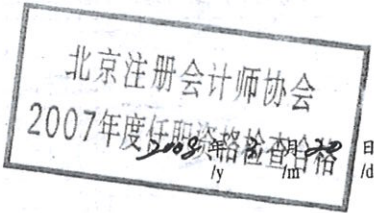 北京注册会计师协会
2007年度任职资格检查合格
2008 年 月 20 日
/y /m /d